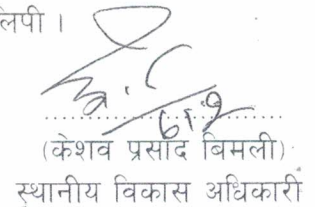 लिपी ।
(केशव प्रसाद बिमली)
स्थानीय विकास अधिकारी